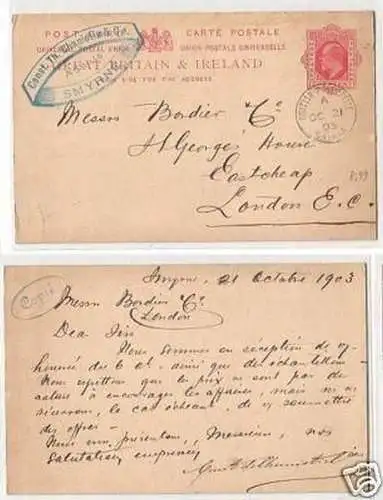 POST CARTE POSTALE
UNION POSTALE UNIVERSELLE
GREAT BRITAIN & IRELAND
FOR THE ADDRESS
Const. Th.
SMYRNE
A
OC 21
03
Messrs Bordier & Co
St Georges House
Eastcheap
London E. C.
8,99
Copié
Smyrne 21 Octobre 1903
Messrs Bordier & Co
London
Dear Sirs
Nous sommes en réception de v/
honorée du 6 ct ainsi que des échantillons
Nous regrettons que les prix ne sont pas de
nature à encourager les affaires, mais ns ne
manquerons, le cas échéant, de vs soumettre
des offres
Nous vous présentons, Messieurs, nos
Salutations empressées